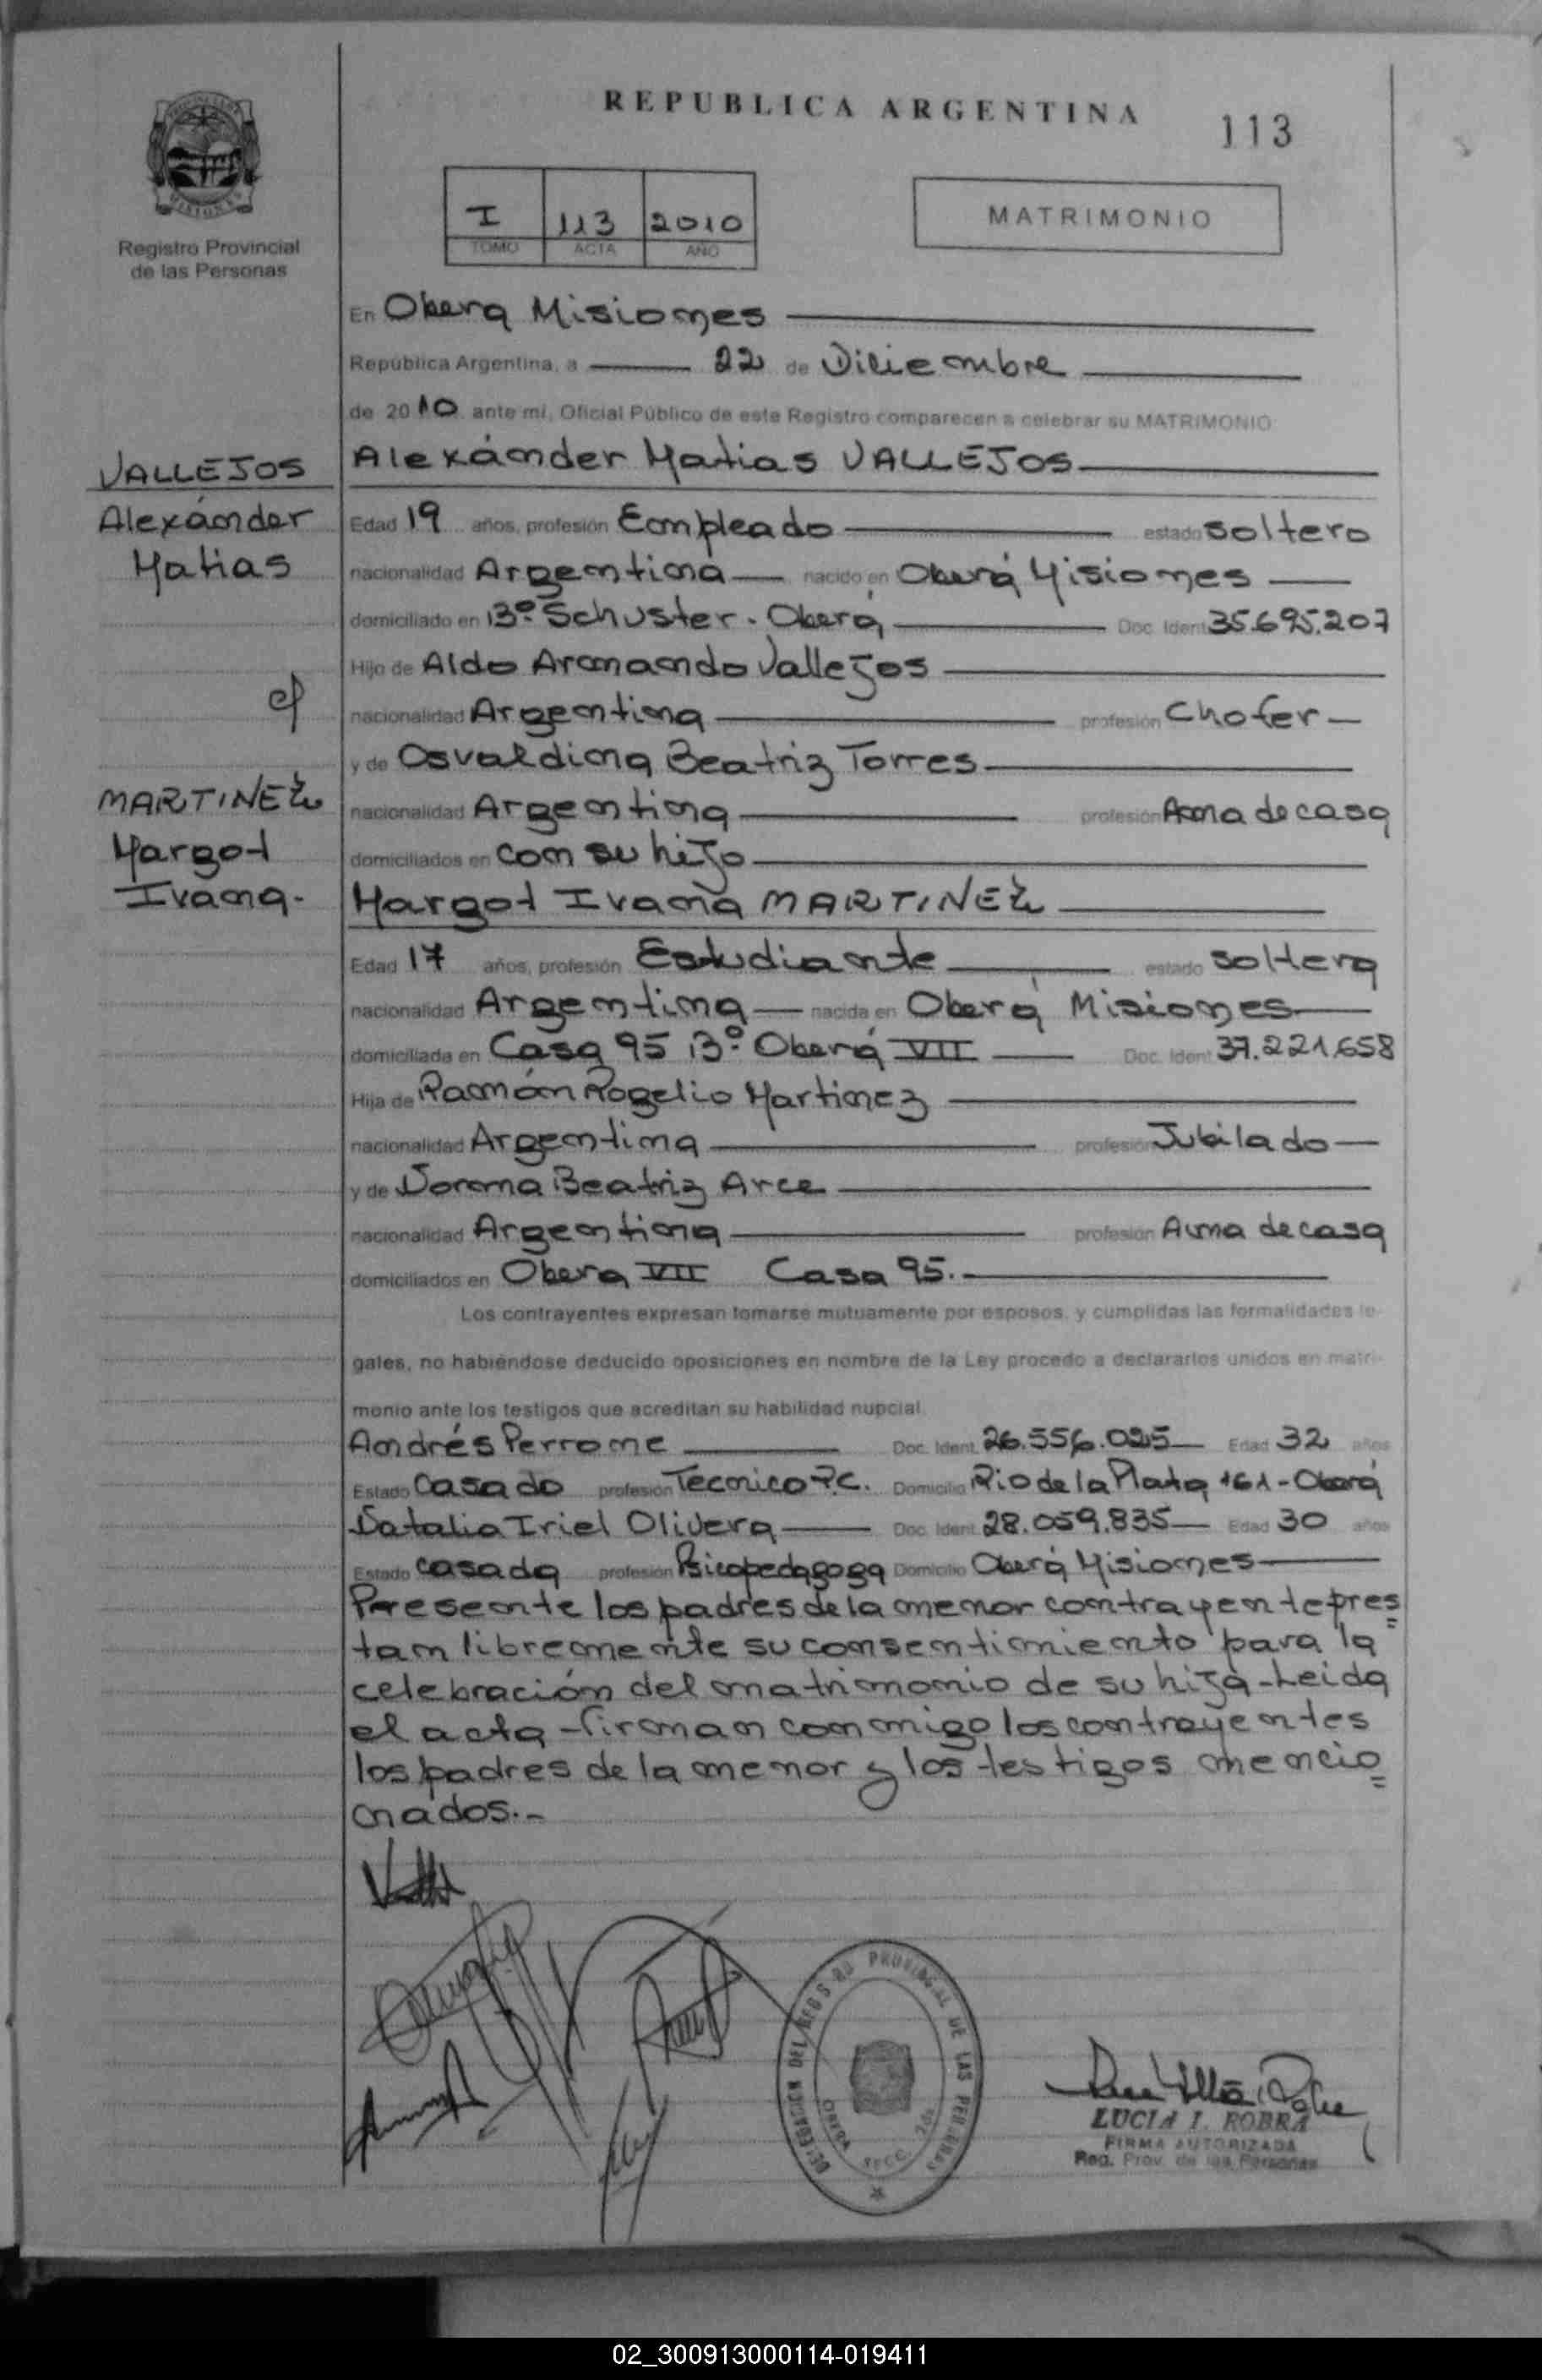 REPUBLICA ARGENTINA
113
I 113 2010
TOMO ACTA AÑO
MATRIMONIO
Registro Provincial
de las Personas
En Obera Misiones
República Argentina, a 22 de Diciembre
de 2010 ante mi, Oficial Público de este Registro comparecen a celebrar su MATRIMONIO
Alexánder Matias VALLEJOS
VALLEJOS
Alexánder
Matias
Edad 19 años, profesión Empleado estado soltero
nacionalidad Argentina nacido en Oberá Misiones
domiciliado en Bº Schuster. Oberá Doc. Ident. 35.695.207
Hijo de Aldo Armando Vallejos
c/
nacionalidad Argentina profesión Chofer
y de Osvaldina Beatriz Torres
MARTINEZ
Margot
Ivana.
nacionalidad Argentina profesión Ama de casa
domiciliados en con su hijo
Margot Ivana MARTINEZ
Edad 17 años, profesión Estudiante estado soltera
nacionalidad Argentina nacida en Oberá Misiones
domiciliada en Casa 95 Bº Oberá VII Doc. Ident. 37.221.658
Hija de Ramón Rogelio Martinez
nacionalidad Argentina profesión Jubilado
y de Norma Beatriz Arce
nacionalidad Argentina profesión Ama de casa
domiciliados en Obera VII Casa 95.
Los contrayentes expresan tomarse mutuamente por esposos, y cumplidas las formalidades le-
gales, no habiéndose deducido oposiciones en nombre de la Ley procedo a declararlos unidos en matri-
monio ante los testigos que acreditan su habilidad nupcial.
Andrés Perrone Doc. Ident. 26.556.025 Edad 32 años
Estado Casado profesión Tecnico P.C. Domicilio Rio de la Plata 161-Oberá
Natalia Iriel Olivera Doc. Ident. 28.059.835 Edad 30 años
Estado casada profesión Psicopedagoga Domicilio Oberá Misiones
Presente los padres de la menor contrayente pres=
tan libremente su consentimiento para la
celebración del matrimonio de su hija-Leida
el acta-firman conmigo los contrayentes
los padres de la menor y los testigos mencio=
nados.-
DELEGACION DEL REGISTRO PROVINCIAL DE LAS PERSONAS
OBERA SECC. 2da
LUCIA I. ROBRA
FIRMA AUTORIZADA
Reg. Prov. de las Personas
02_300913000114-019411